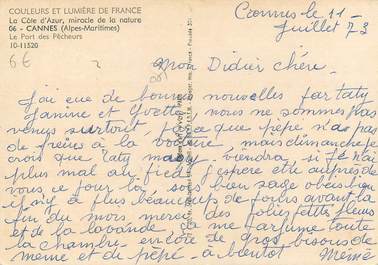 COULEURS ET LUMIÈRE DE FRANCE
La Côte d'Azur, miracle de la nature
06 - CANNES (Alpes-Maritimes)
Le Port des Pêcheurs
10-11520
6€
Cannes le 11-
Juillet 73
Mon Didier chéri.
J'ai eue de bonnes nouvelles par taty
Janine et Yvette, nous ne sommes pas
venus surtout, parce que pépé n'a pas
de freins à la voiture mais dimanche je
crois que taty viendra, si 
plus mal au pied, j'espère etre auprès de
vous ce jour là, sois bien sage obeis bien
il n'y a plus beaucoup de jours avant la
fin du mois merci des jolies petites fleurs
et de la lavande, sa me parfume toute
la chambre encore de gros bisous de
meme et de pépé à bientot Mémé